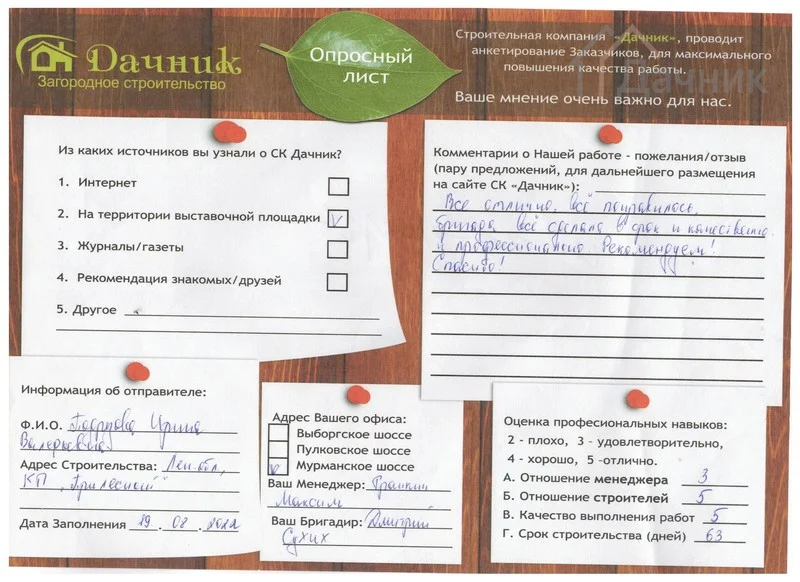 Дачник
Загородное строительство
Опросный
лист
Строительная компания «Дачник», проводит
анкетирование Заказчиков, для максимального
повышения качества работы.
Ваше мнение очень важно для нас.
Дачник
Из каких источников вы узнали о СК Дачник?
1. Интернет
2. На территории выставочной площадки V
3. Журналы/газеты
4. Рекомендация знакомых/друзей
5. Другое
Комментарии о Нашей работе - пожелания/отзыв
(пару предложений, для дальнейшего размещения
на сайте СК «Дачник»):
Все отлично. всё понравилось,
бригада всё сделала в срок и качественно
и профессионально. Рекомендуем!
Спасибо!
Информация об отправителе:
Ф.И.О. Ирина
Валерьевна
Адрес Строительства: Лен.обл,
КП "Прилесный"
Дата Заполнения 19.08.2022
Адрес Вашего офиса:
Выборгское шоссе
Пулковское шоссе
V Мурманское шоссе
Ваш Менеджер:
Максим
Ваш Бригадир: Дмитрий
Сухих
Оценка професиональных навыков:
2 - плохо, 3 - удовлетворительно,
4 - хорошо, 5 -отлично.
А. Отношение менеджера 3
Б. Отношение строителей 5
В. Качество выполнения работ 5
Г. Срок строительства (дней) 63